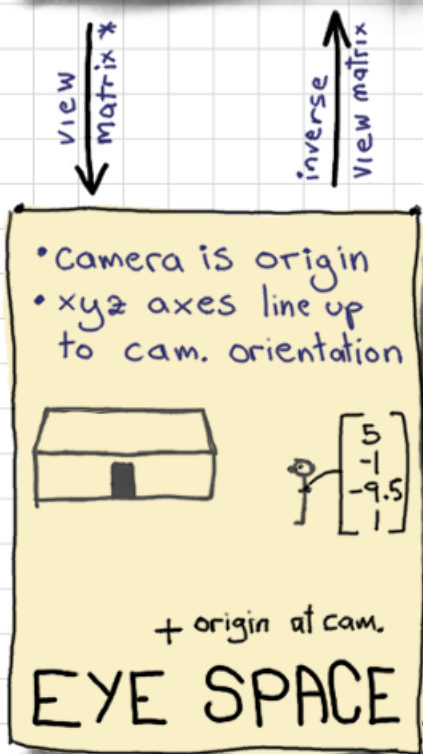 view
matrix *
inverse
view matrix
• camera is origin
• xyz axes line up
to cam. orientation
5
-1
-9.5
1
+ origin at cam.
EYE SPACE